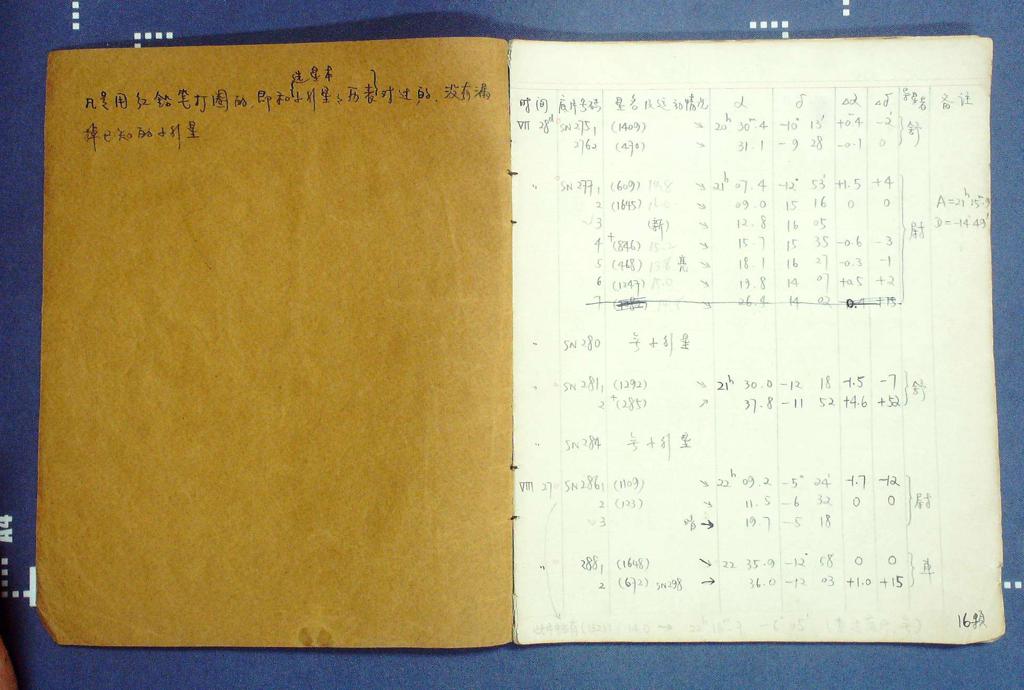 选星本
凡是用红铅笔打圈的,即和小行星历表对过的,没有漏
掉已知的小行星
时间 底片号码 星名及运动情况 α δ Δα Δδ 备注
VII 28d SN275₁ (1409) ↘ 20h 30m.4 -10° 13' +0m.4 -2' 舒
276₂ (470) ↘ 31.1 -9 28 -0.1 0
" SN277₁ (609) ↘ 21h 07.4 -12° 53' +1.5 +4
2 (1645) ↘ 09.0 15 16 0 0 A=21h 15m.9
√3 (新) ↘ 12.8 16 05 D=-14°49'
4 +(846) ↘ 15.7 15 35 -0.6 -3 尉
5 (468) 亮 ↘ 18.1 16 27 -0.3 -1
6 (1247) ↘ 19.8 14 07 +0.5 +2
7 26.4 14 02 0.4 +15
" SN280 无小行星
" SN281₁ (1292) ↘ 21h 30.0 -12 18 -1.5 -7 舒
2 +(285) ↗ 37.8 -11 52 +4.6 +52
" SN284 无小行星
VIII 27 SN286₁ (1109) ↘ 22h 09.2 -5° 24' -1.7 -12
2 (123) ↘ 11.5 -6 32 0 0 尉
√3 暗→ 19.7 -5 18
" 288₁ (1648) ↘ 22 35.9 -12° 58 0 0
2 (672) SN298 → 36.0 -12 03 +1.0 +15
16颗